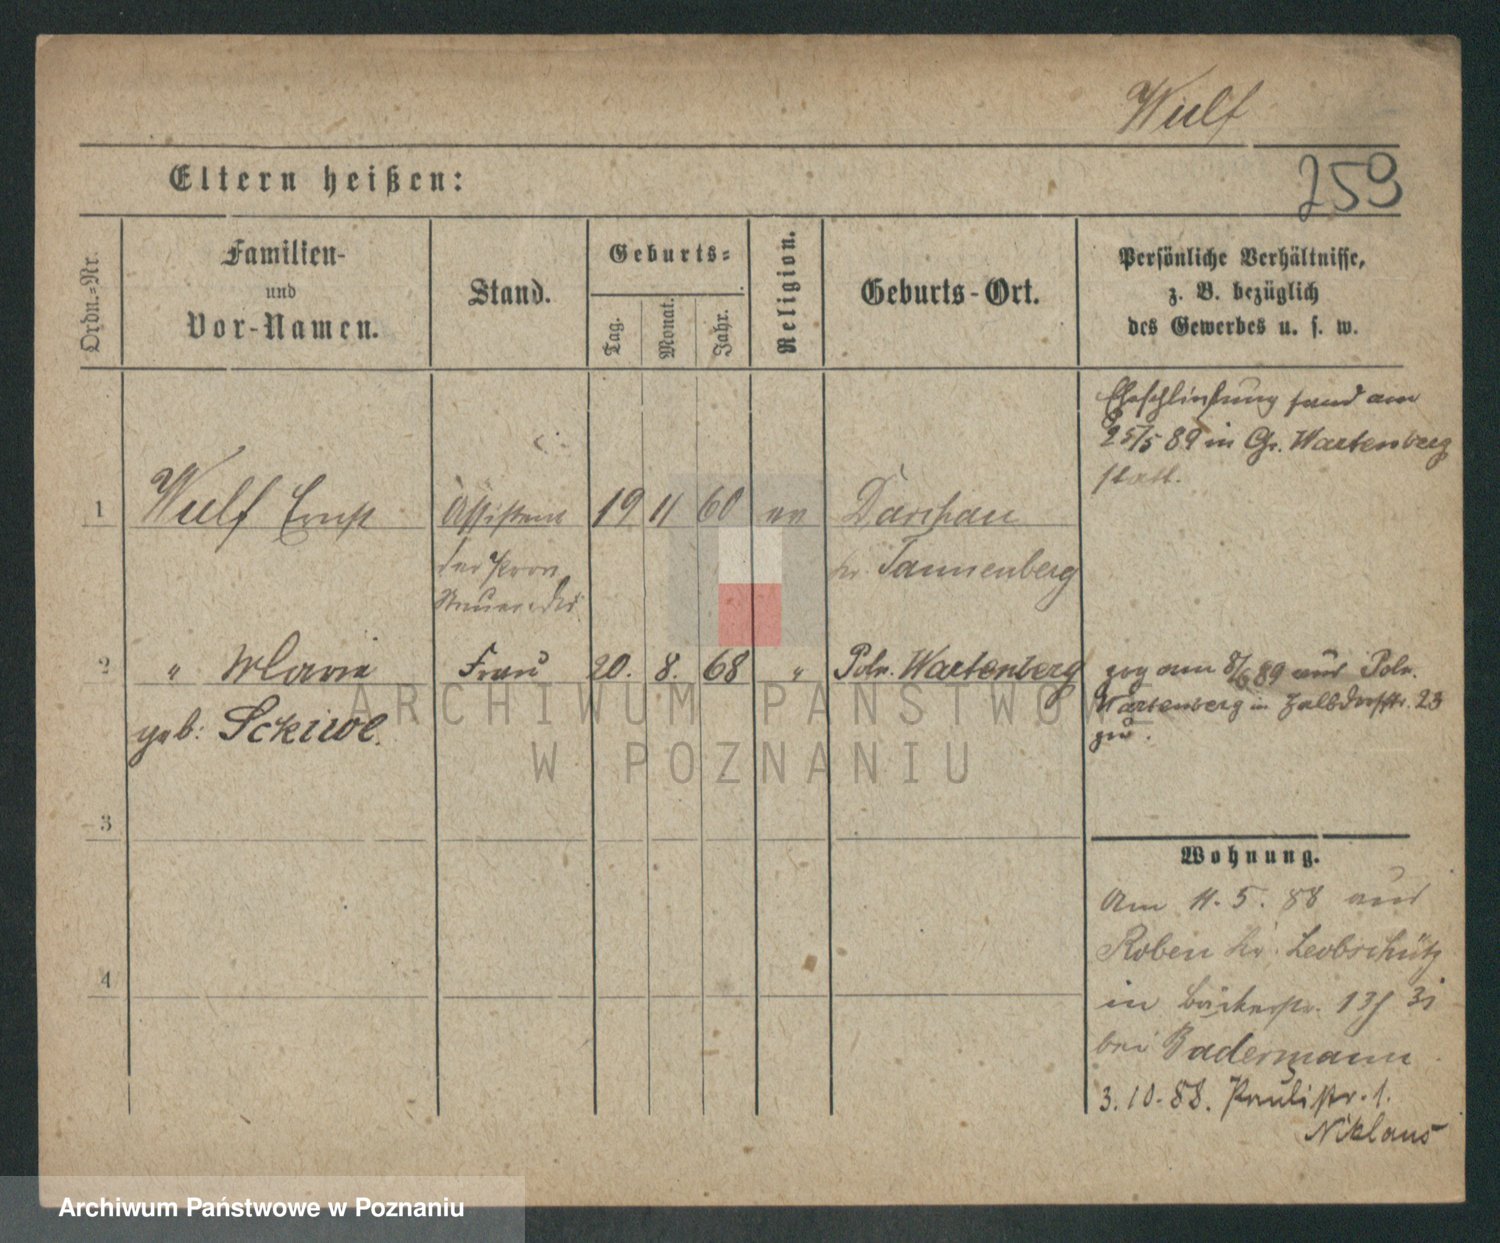 Wulf
259
Eltern heißen:
Ordn.-Nr.
Familien-
und
Vor-Namen.
Stand.
Geburts-
Tag.
Monat.
Jahr.
Religion.
Geburts-Ort.
Persönliche Verhältnisse,
z. B. bezüglich
des Gewerbes u. s. w.
Eheschließung fand am
25/5 89 in Gr. Wartenberg
statt.
1 Wulf Ernst Assistent 19 11 60 ev
der Prov
Steuer-Dir. Kr. Tannenberg
2 " Maria Frau 20. 8. 68 " Poln. Wartenberg
geb: Sckuwe.
zog am 8/6 89 aus Poln.
Wartenberg in Halbdorfstr. 23
zu.
3
4
Wohnung.
Am 11. 5. 88 aus
Roben Kr. Leobschütz
in Bäckerstr. 13
bei Badermann
3.10.88. Paulistr. 1.
Niklaus
ARCHIWUM PAŃSTWOWE
W POZNANIU
Archiwum Państwowe w Poznaniu